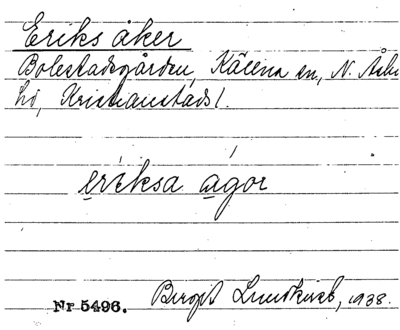 Eriks åker
Bolestadsgården, Kācena sn, N. Åsbo
hd, Kristianstads l.
eriksa agor
Nr 5496. Birgit Lundkvist, 1938.